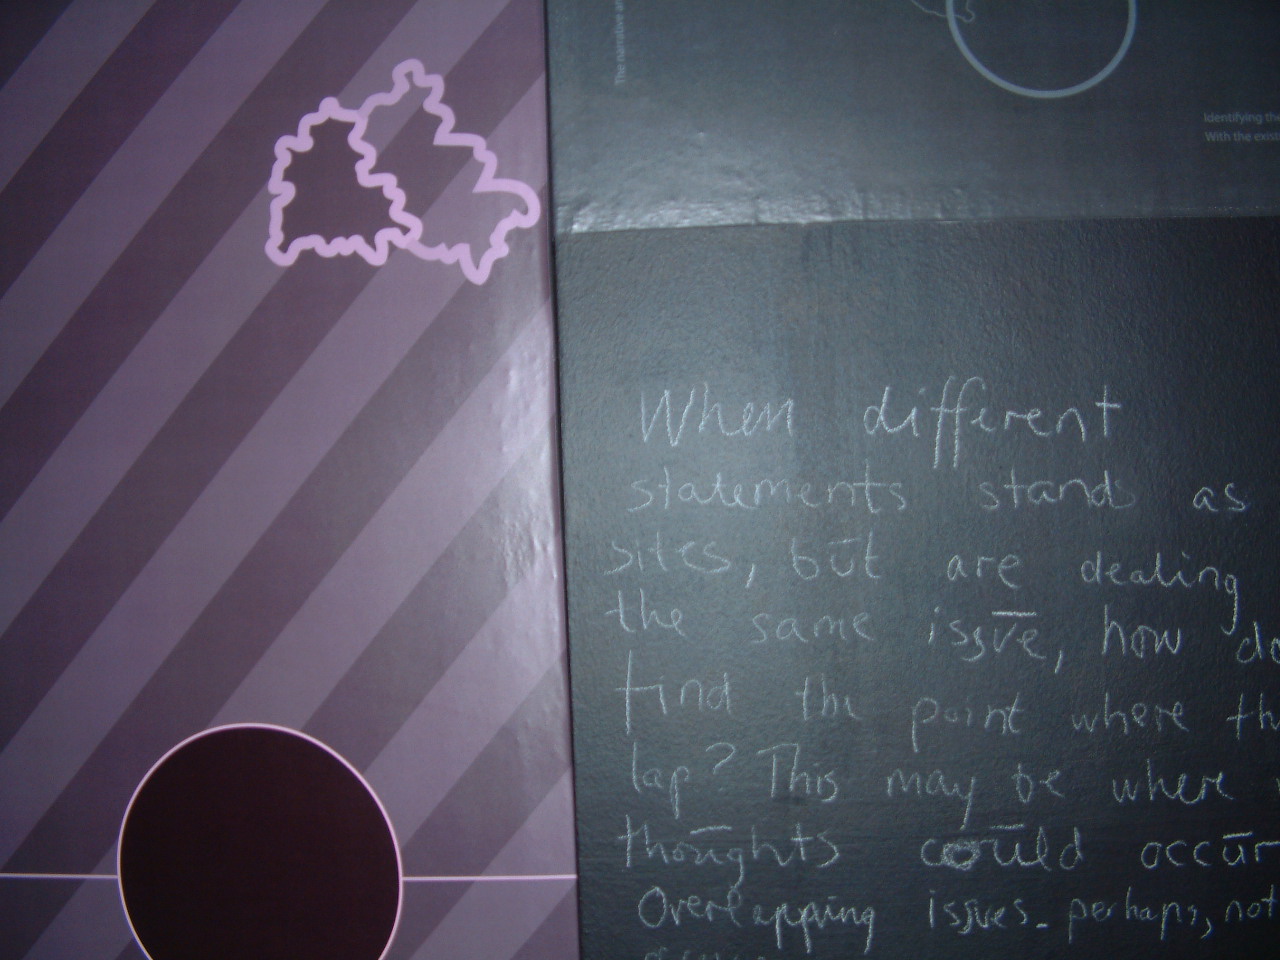 The narrative
Identifying the
With the exis
When different
statements stand as
sites, but are dealing
the same issue, how do
find the point where th
lap? This may be where
thoughts could occur
Overlapping issues. perhaps, not